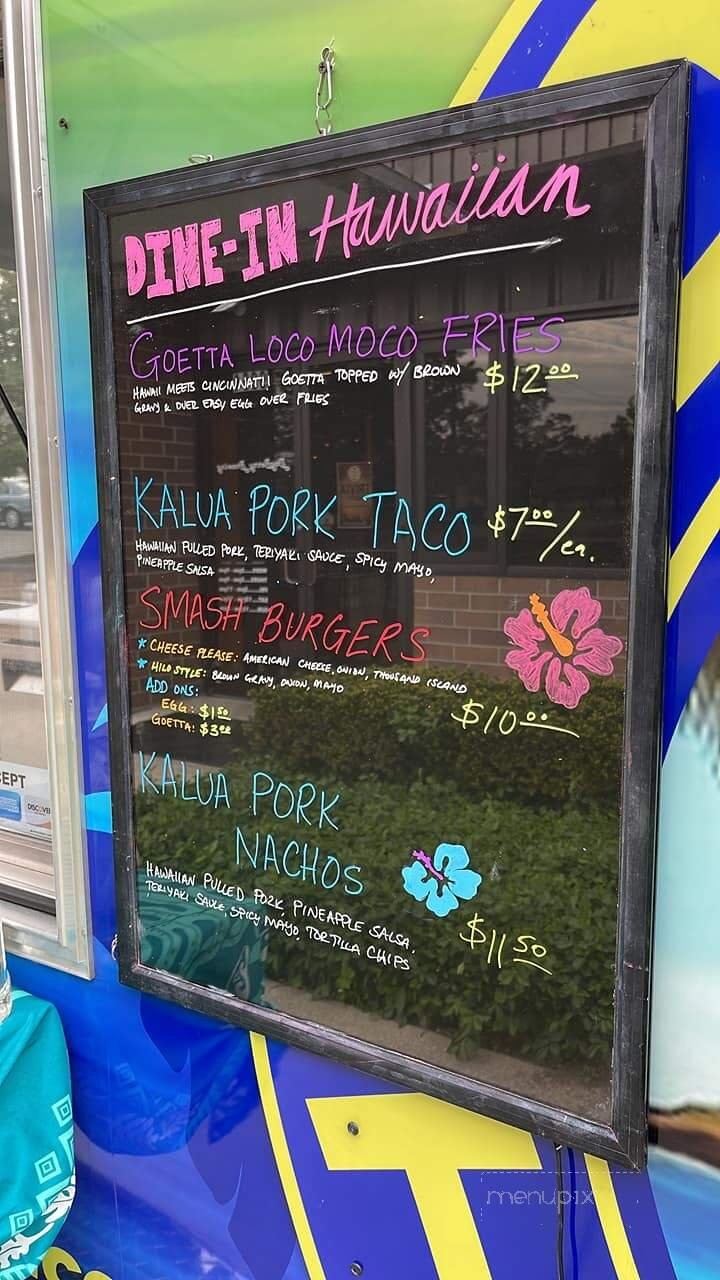 DINE-IN Hawaiian
GOETTA LOCO MOCO FRIES
HAWAII MEETS CINCINNATI! GOETTA TOPPED W/ BROWN $12.00
GRAVY & OVER EASY EGG OVER FRIES
KALUA PORK TACO $7.00/ea.
HAWAIIAN PULLED PORK, TERIYAKI SAUCE, SPICY MAYO,
PINEAPPLE SALSA
SMASH BURGERS
* CHEESE PLEASE: AMERICAN CHEESE, ONION, THOUSAND ISLAND
* HILO STYLE: BROWN GRAVY, ONION, MAYO
ADD ONS:
EGG: $1.50
GOETTA: $3.00
$10.00
KALUA PORK
NACHOS
HAWAIIAN PULLED PORK, PINEAPPLE SALSA,
TERIYAKI SAUCE, SPICY MAYO, TORTILLA CHIPS
$11.50
DISCOVER
menupix